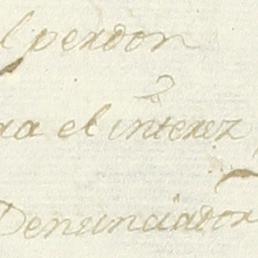 l perdon
ra el interez
Denunciador